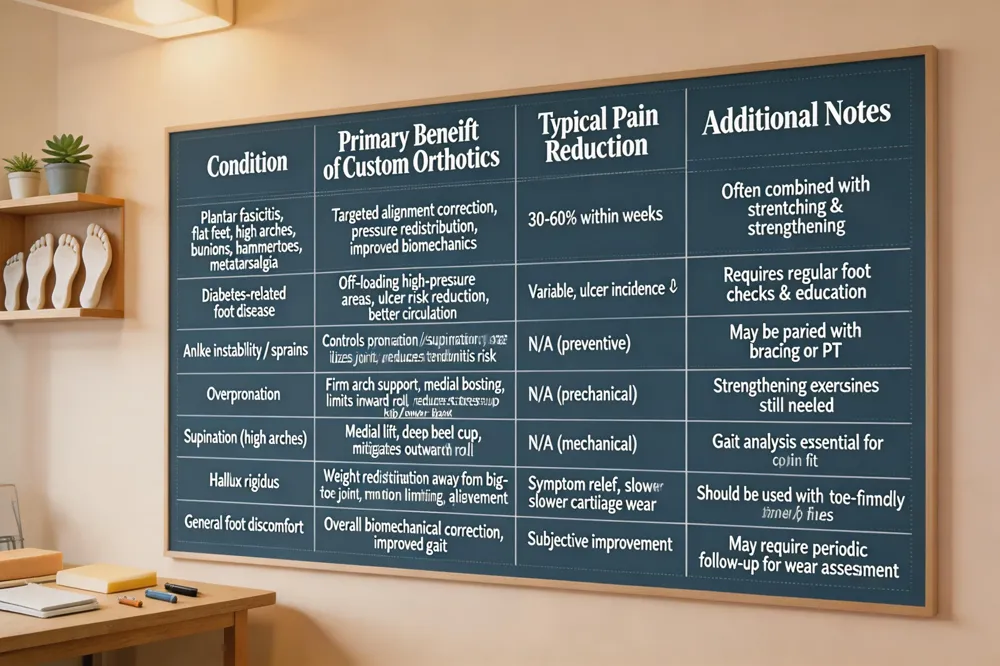 Condition
Primary Beneift
of Custom Orthotics
Typical Pain
Reduction
Additional Notes
Plantar fasicitis,
flat feet, high arches,
bunions, hammertoes,
metatarsalgia
Targeted alignment correction,
pressure redistribution,
improved biomechanics
30-60% within weeks
Often combined with
strentching &
strengthening
Diabetes-related
foot disease
Off-loading high-pressure
areas, ulcer risk reduction,
better circulation
Variable, ulcer incidence ⇩
Requires regular foot
checks & education
Anlke instability / sprains
Controls pronation/supination,
lizes joint, reduces tendunitis risk
N/A (preventive)
May be paried with
bracing or PT
Overpronation
Firm arch support, medial bosting,
limits inward roll,
N/A (prechanical)
Strengthening exersines
still needed
Supination (high arches)
Medial lift, deep beel cup,
mitigates outward roll
N/A (mechanical)
Gait analysis essential for
fit
Hallux rigidus
Weight redistibution away fom big-
toe joint, motion limiting, aligvement
Symptom relef, slower
slower cartilage wear
Should be used with toe-finndly
General foot discomfort
Overall biomechanical correction,
improved gait
Subjective improvement
May require periodic
follow-up for wear assesment